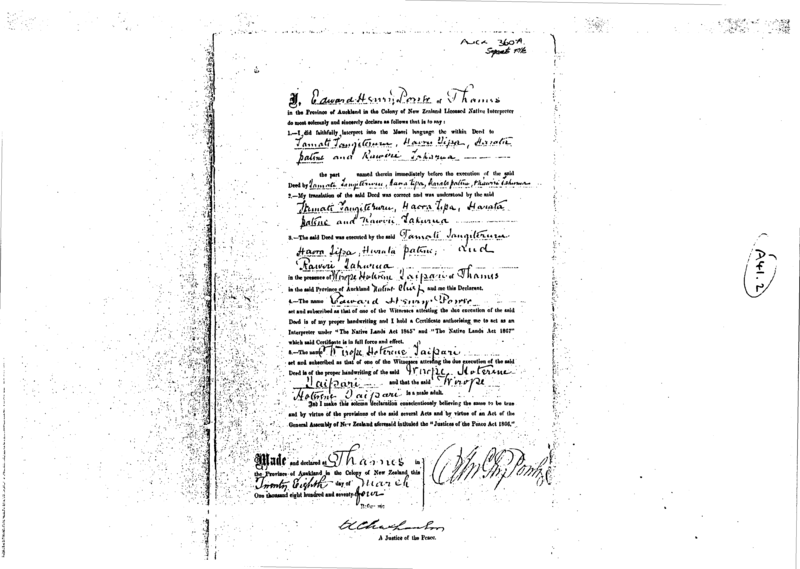 Auck 360A.
Separate file
I, Edward Henry Power of Thames
in the Province of Auckland in the Colony of New Zealand Licensed Native Interpreter
do most solemnly and sincerely declare as follows that is to say:
1.—I did faithfully interpret into the Maori language the within Deed to
Tamati Tangiteruru, Haora Tipa, Harata
patene and Rawiri Takurua
the part named therein immediately before the execution of the said
Deed by Tamati Tangiteruru, Haora Tipa, Harata patene, Rawiri Takurua
2.—My translation of the said Deed was correct and was understood by the said
Tamati Tangiteruru, Haora Tipa, Harata
patene and Rawiri Takurua
3.—The said Deed was executed by the said Tamati Tangiteruru
Haora Tipa, Harata patene, and
Rawiri Takurua
in the presence of Wirope Hoterene Taipari of Thames
in the said Province of Auckland Native Chief and me this Declarant.
4.—The name Edward Henry Power
set and subscribed as that of one of the Witnesses attesting the due execution of the said
Deed is of my proper handwriting and I hold a Certificate authorising me to act as an
Interpreter under "The Native Lands Act 1865" and "The Native Lands Act 1867"
which said Certificate is in full force and effect.
5.—The name Wirope Hoterene Taipari
set and subscribed as that of one of the Witnesses attesting the due execution of the said
Deed is of the proper handwriting of the said Wirope Hoterene
Taipari and that the said Wirope
Hoterene Taipari is a male adult.
And I make this solemn declaration conscientiously believing the same to be true
and by virtue of the provisions of the said several Acts and by virtue of an Act of the
General Assembly of New Zealand aforesaid intituled the "Justices of the Peace Act 1866."
Made and declared at Thames in
the Province of Auckland in the Colony of New Zealand this
Twenty Eighth day of March
One thousand eight hundred and seventy-four
Before me
A Justice of the Peace.
A41.2